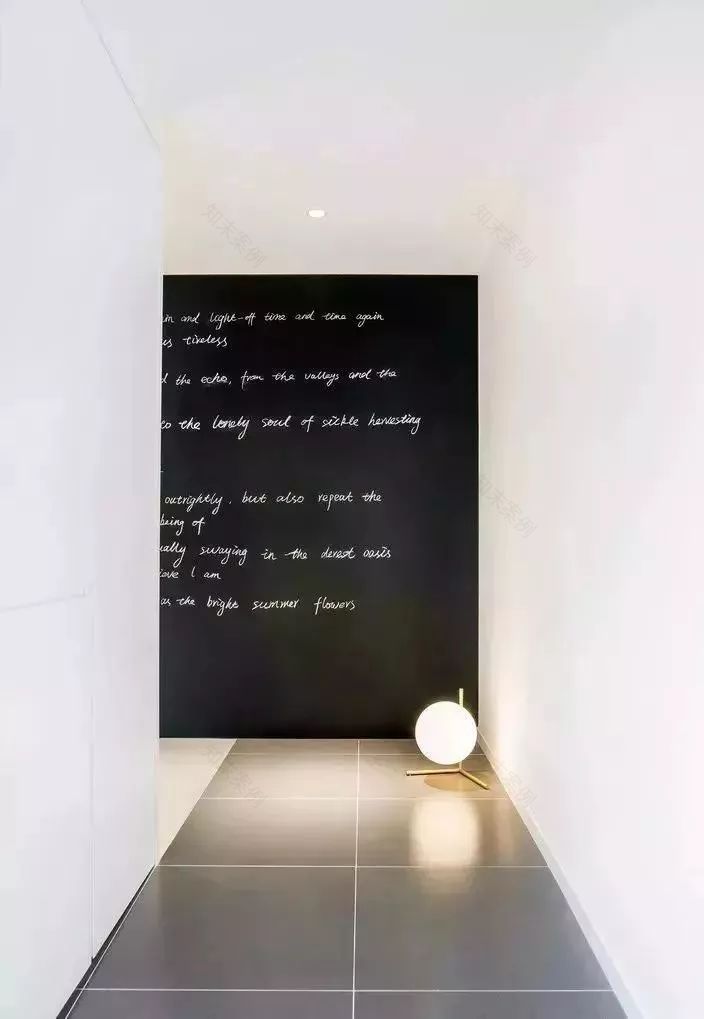 in and light-off time and time again
us tireless
d the echo, from the valleys and the
to the lonely soul of sickle hervesting
outrightly, but also repeat the
being of
ually swaying in the derest oasis
ieve I am
as the bright summer flowers
知末案例
知末案例
知末案例
知末案例
知末案例